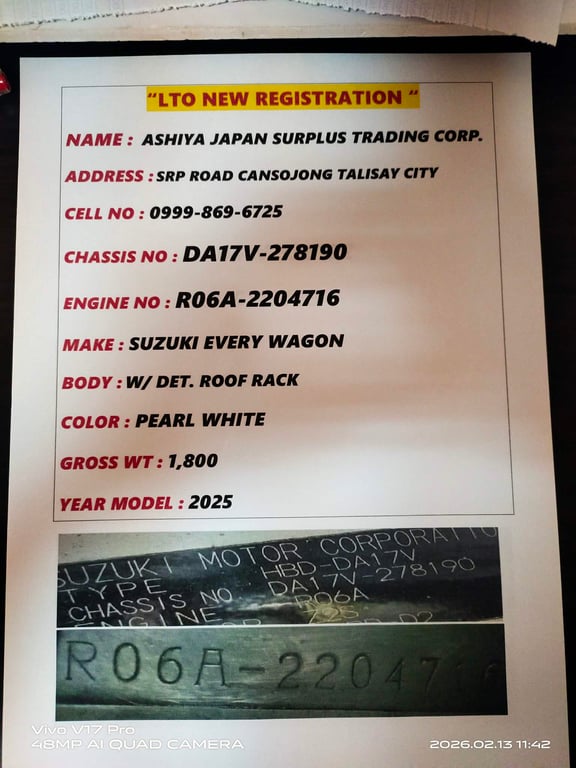 “LTO NEW REGISTRATION “
NAME : ASHIYA JAPAN SURPLUS TRADING CORP.
ADDRESS : SRP ROAD CANSOJONG TALISAY CITY
CELL NO : 0999-869-6725
CHASSIS NO : DA17V-278190
ENGINE NO : R06A-2204716
MAKE : SUZUKI EVERY WAGON
BODY : W/ DET. ROOF RACK
COLOR : PEARL WHITE
GROSS WT : 1,800
YEAR MODEL : 2025
SUZUKI MOTOR CORPORATIO
TYPE HBD-DA17V
CHASSIS NO DA17V-278190
ENGINE R06A
R06A-2204716
Vivo V17 Pro
48MP AI QUAD CAMERA
2026.02.13 11:42